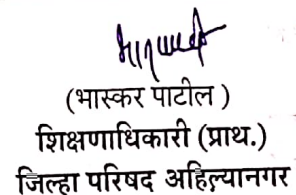 (भास्कर पाटील )
शिक्षणाधिकारी (प्राथ.)
जिल्हा परिषद अहिल्यानगर